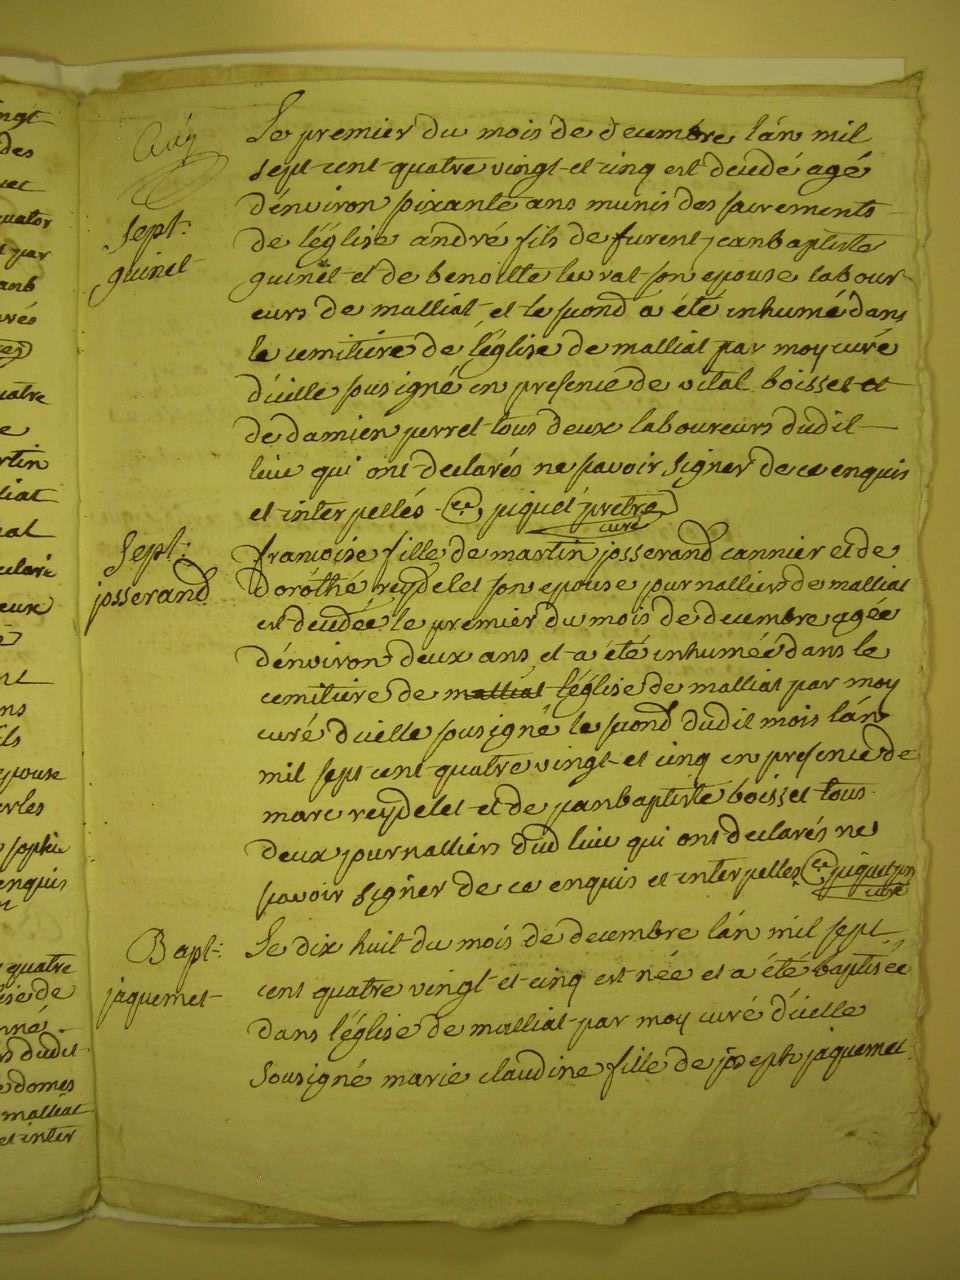 Sept:
guinet
Le premier du mois de decembre l'an mil
sept cent quatre vingt et cinq est decedé agé
d'environ soixante ans munis des sacrements
de l'église andré fils de furent jeanbaptiste
guinet et de benoitte levrat son epouse labour-
eurs de malliat et le second a été inhumé dans
le cemitiere de l'église de malliat par moy curé
d'icelle sousigné en presence de vital boisset et
de damien perret tous deux laboureurs dudit
lieu qui ont declarés ne savoir signer de ce enquis
et interpellés piquet prêtre
curé
Sept:
josserand
francoise fille de martin josserand cannier et de
dorothé reydelet son epouse journalliers de malliat
est decedée le premier du mois de decembre agée
d'environ deux ans et a été inhumée dans le
cemitiere de malliat l'église de malliat par moy
curé d'icelle sousigné le second dudit mois l'an
mil sept cent quatre vingt et cinq en presence de
marc reydelet et de jeanbaptiste boisset tous
deux journalliers dud lieu qui ont declarés ne
savoir signer de ce enquis et interpelles piquet
curé
Bapt:
jaquemet
Le dix huit du mois de decembre l'an mil sept
cent quatre vingt et cinq est née et a été baptisée
dans l'église de malliat par moy curé d'icelle
sousigné marie claudine fille de joseph jaquemet